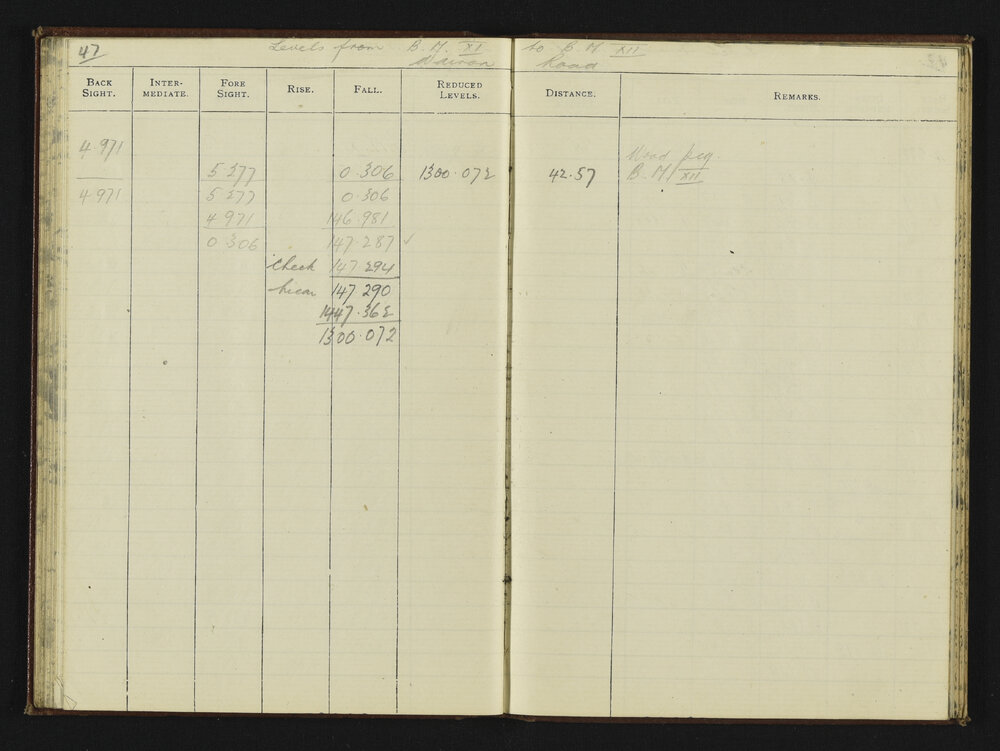 47 Levels from B.M. XI to B.M XII
Road
BACK SIGHT. INTER-MEDIATE. FORE SIGHT. RISE. FALL. REDUCED LEVELS. DISTANCE. REMARKS.
4.971
Wood peg
5.277 0.306 1300.072 42.57 B.M. XII
4.971 5.277 0.306
4.971 146.981
0.306 147.287 ✓
check 147.294
mean 147.290
1447.362
1300.072